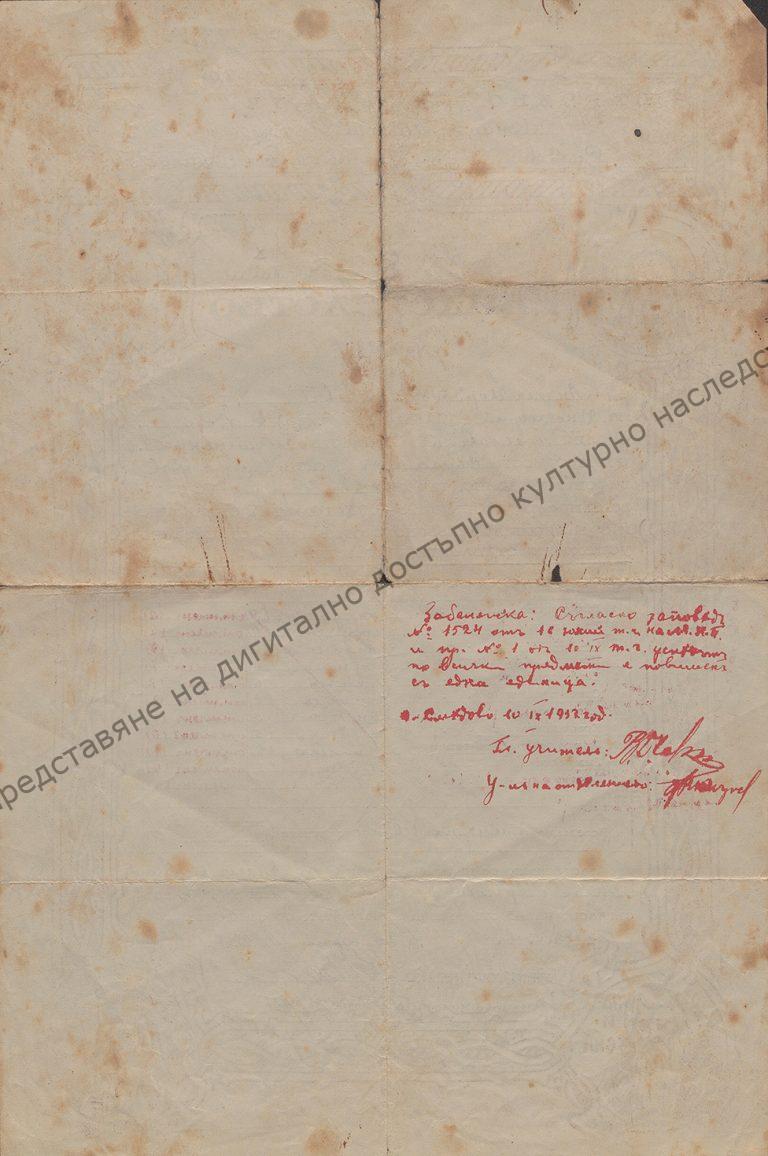 Забележка: Съгласно заповедь
№ 1524 отъ 16 юний т.г. на М.Н.П.
и пр. № 1 отъ 10 IX т.г. успехътъ
по всички предмети е повишенъ
съ една единица.
10 IX 1912 год.
Гл. учитель:
У-ль на отделението:
представяне на дигитално достъпно културно наследс